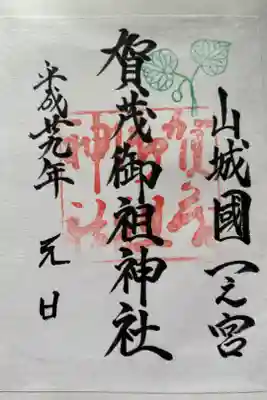 山城國一之宮
賀茂御祖神社
平成廿九年 元日
賀茂御祖神社